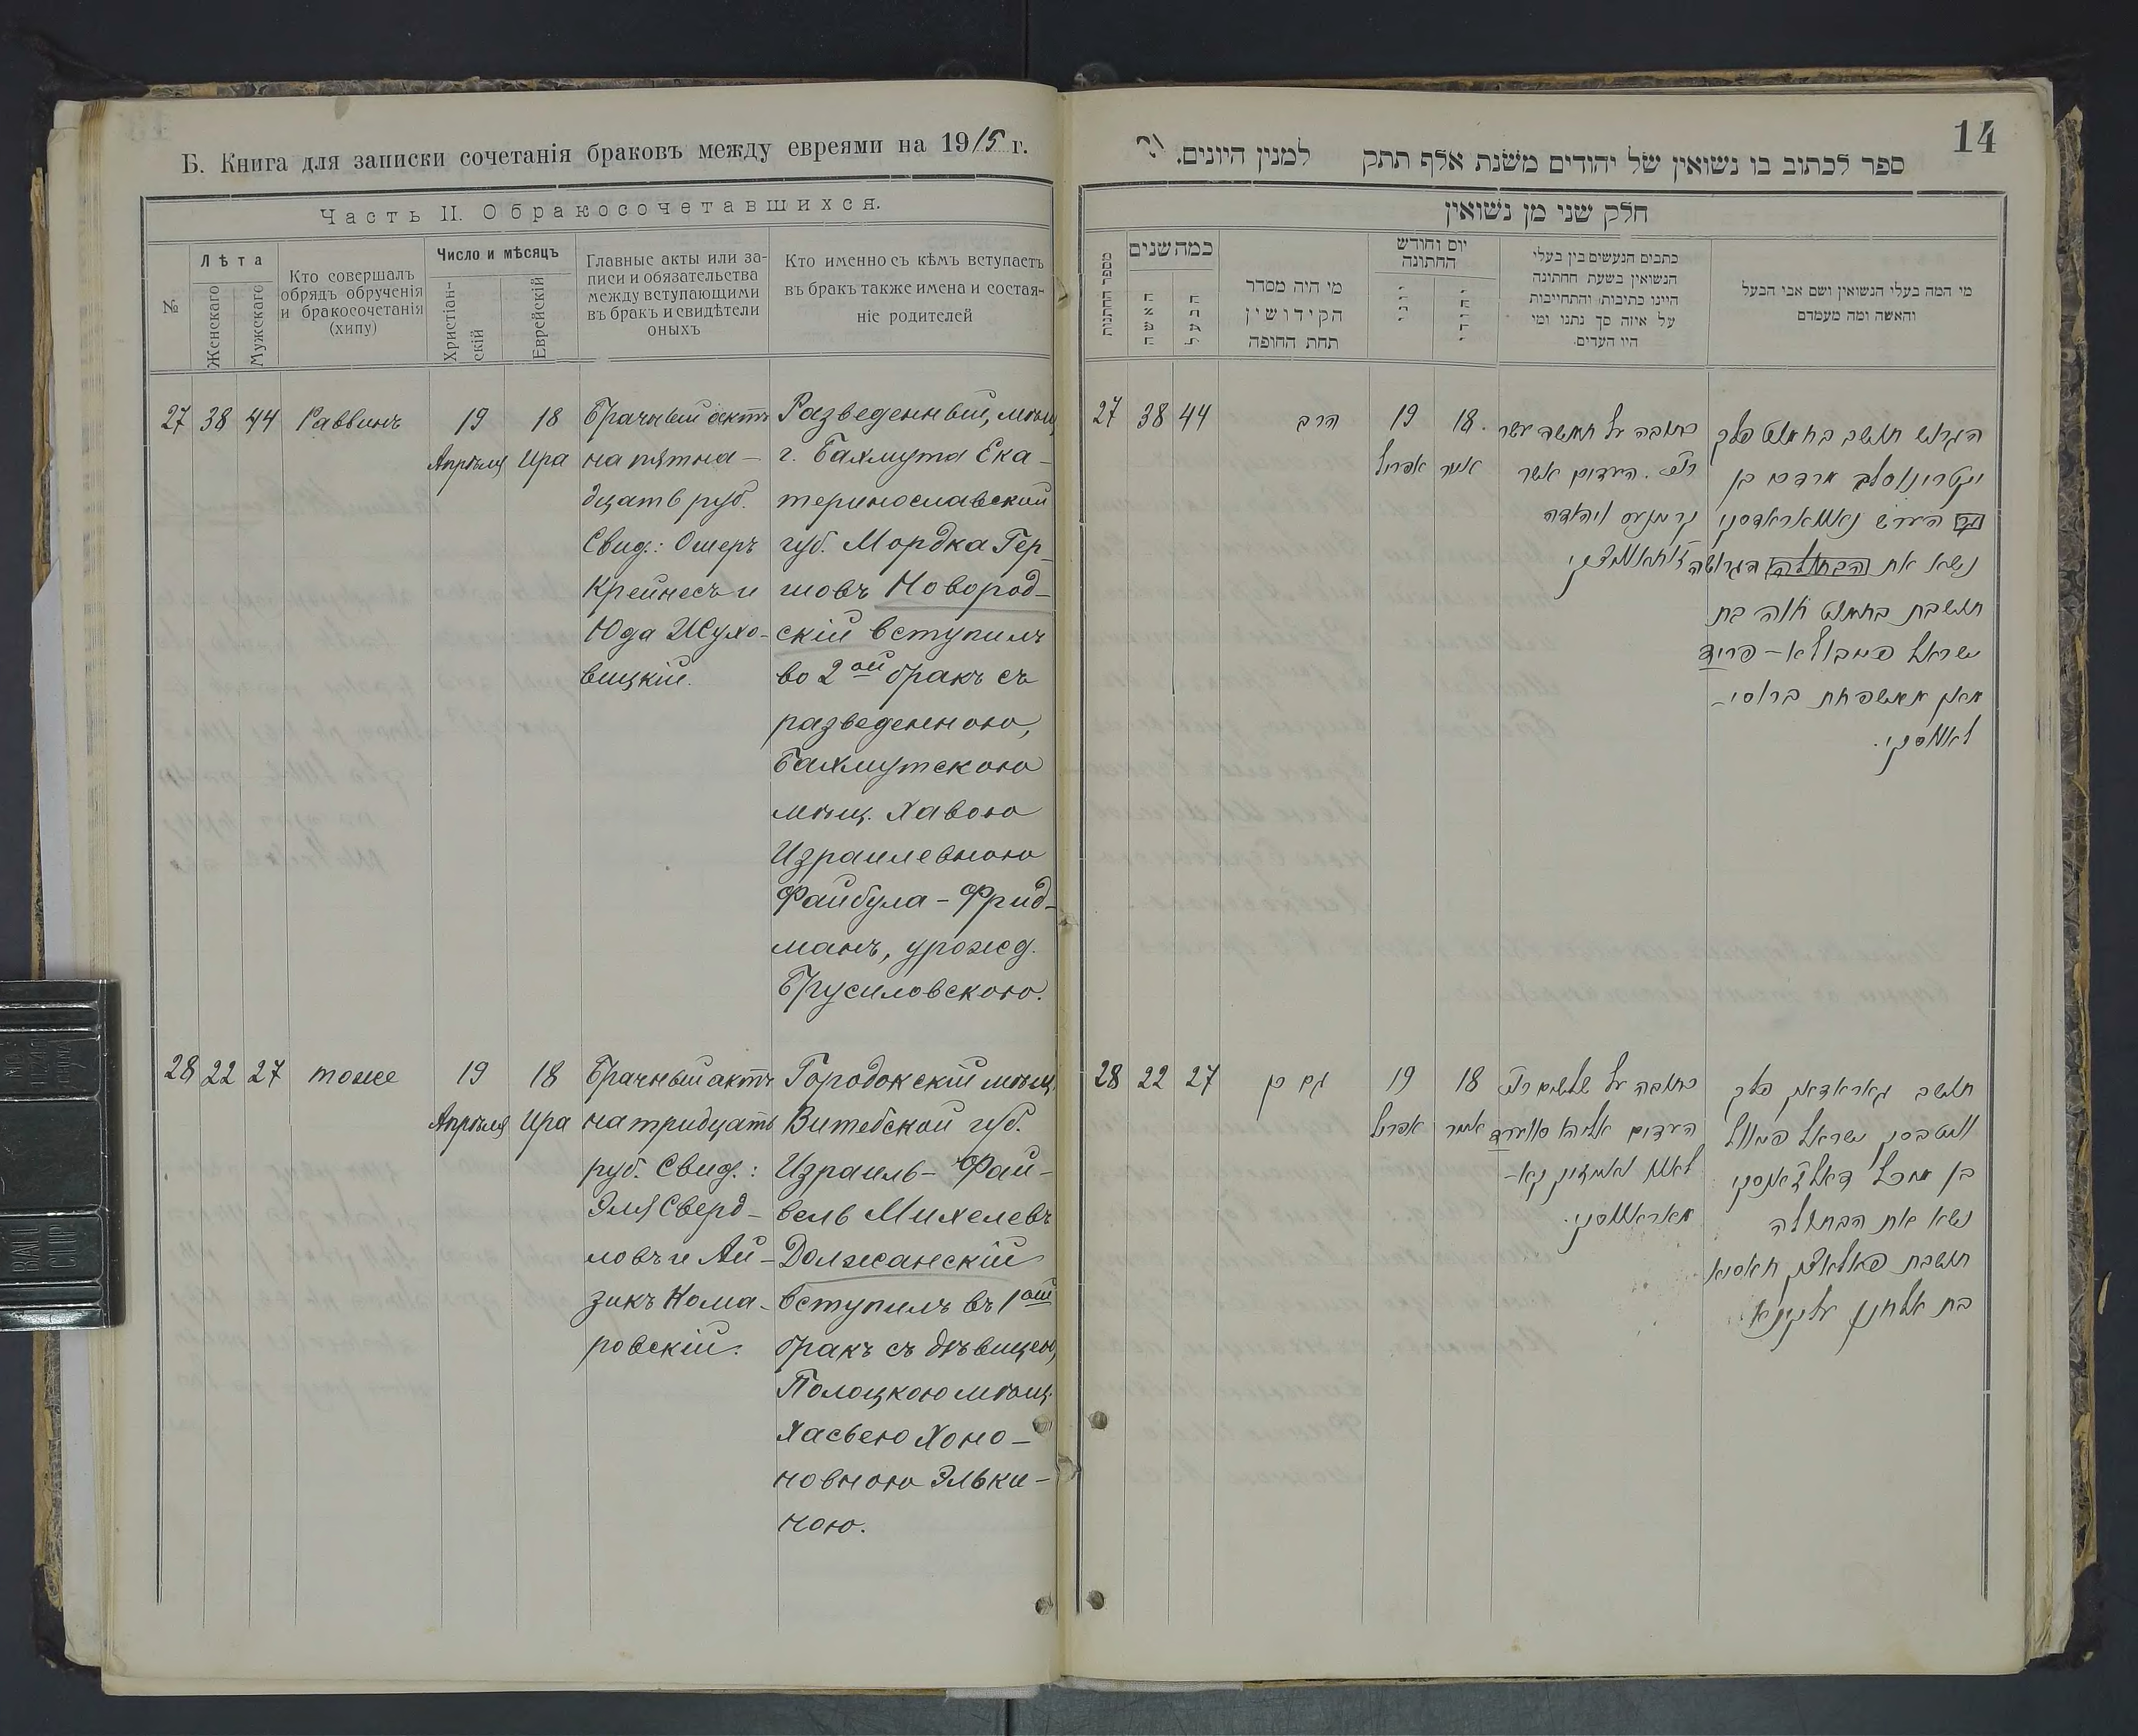 Б. Книга для записки сочетанія браковъ между евреями на 1915 г.
Часть II. О бракосочетавшихся.
№
Лѣта
Женскаго
Мужскаго
Кто совершалъ
обрядъ обрученія
и бракосочетанія
(хипу)
Число и мѣсяцъ
Христіан-
скій
Еврейскій
Главные акты или за-
писи и обязательства
между вступающими
въ бракъ и свидѣтели
оныхъ
Кто именно съ кѣмъ вступаетъ
въ бракъ также имена и состоя-
ніе родителей
27 38 44 Раввинъ
19
Апрѣля
18
Ира
Брачный актъ
на пятна-
дцать руб.
Свид.: Ошеръ
Крейнесъ и
Юда Жухо-
вицкій.
Разведенный, мѣщ.
г. Бахмута Ека-
теринославской
губ. Мордка Гер-
шовъ Новород-
скій вступилъ
во 2ой бракъ съ
разведенною,
Бахмутскою
мѣщ. Хавою
Израилевною
Файбула-Фрид-
манъ, урожд.
Брусиловскою.
28 22 27 тоже
19
Апрѣля
18
Ира
Брачный актъ
на тридцать
руб. Свид.:
Эля Сверд-
ловъ и Ай-
зикъ Кома-
ровскій.
Городокскій мѣщ.
Витебской губ.
Израиль-Фай-
вель Михелевъ
Должанскій
вступилъ въ 1ый
бракъ съ дѣвицею,
Полоцкою мѣщ.
Хасьею Хоно-
новною Эльки-
ною.
14
ספר לכתוב בו נשואין של יהודים משנת אלף תתק למנין היונים.
חלק שני מן נשואין
מספר החתונות
כמה שנים
האשה
הבעל
מי היה מסדר
הקידושין
תחת החופה
יום וחודש
החתונה
יוני
יהודי
כתבים הנעשים בין בעלי
הנשואין בשעת החתונה
היינו כתיבות והתחייבות
על איזה סך נתנו ומי
היו העדים
מי המה בעלי הנשואין ושם אבי הבעל
והאשה ומה מעמדם
27 38 44
הרב
19
אפריל
18.
אייר
כתובה על חמשה עשר
רו״כ. העדים אשר
קריינעס ויהודה
הגרוש תושב בחמוט פלך
מרדכי בן
הערש נאוואראדסקי
נשא את הבתולה הגרושה
תושבת בחמוט חוה בת
ישראל פייבולא-פריד
מאן ממשפחת ברוסי-
לאווסקי.
28 22 27
גם כן
19
אפריל
18
אייר
כתובה על שלשים רו״כ
העדים אליהו סווערד
לאוו ואייזיק קא-
מאראווסקי.
תושב גאראדאק פלך
וויטבסק ישראל פייוויל
בן מיכל דאלזאנסקי
נשא את הבתולה
תושבת פאלאצק חאסיא
בת אלחנן עלקינא.